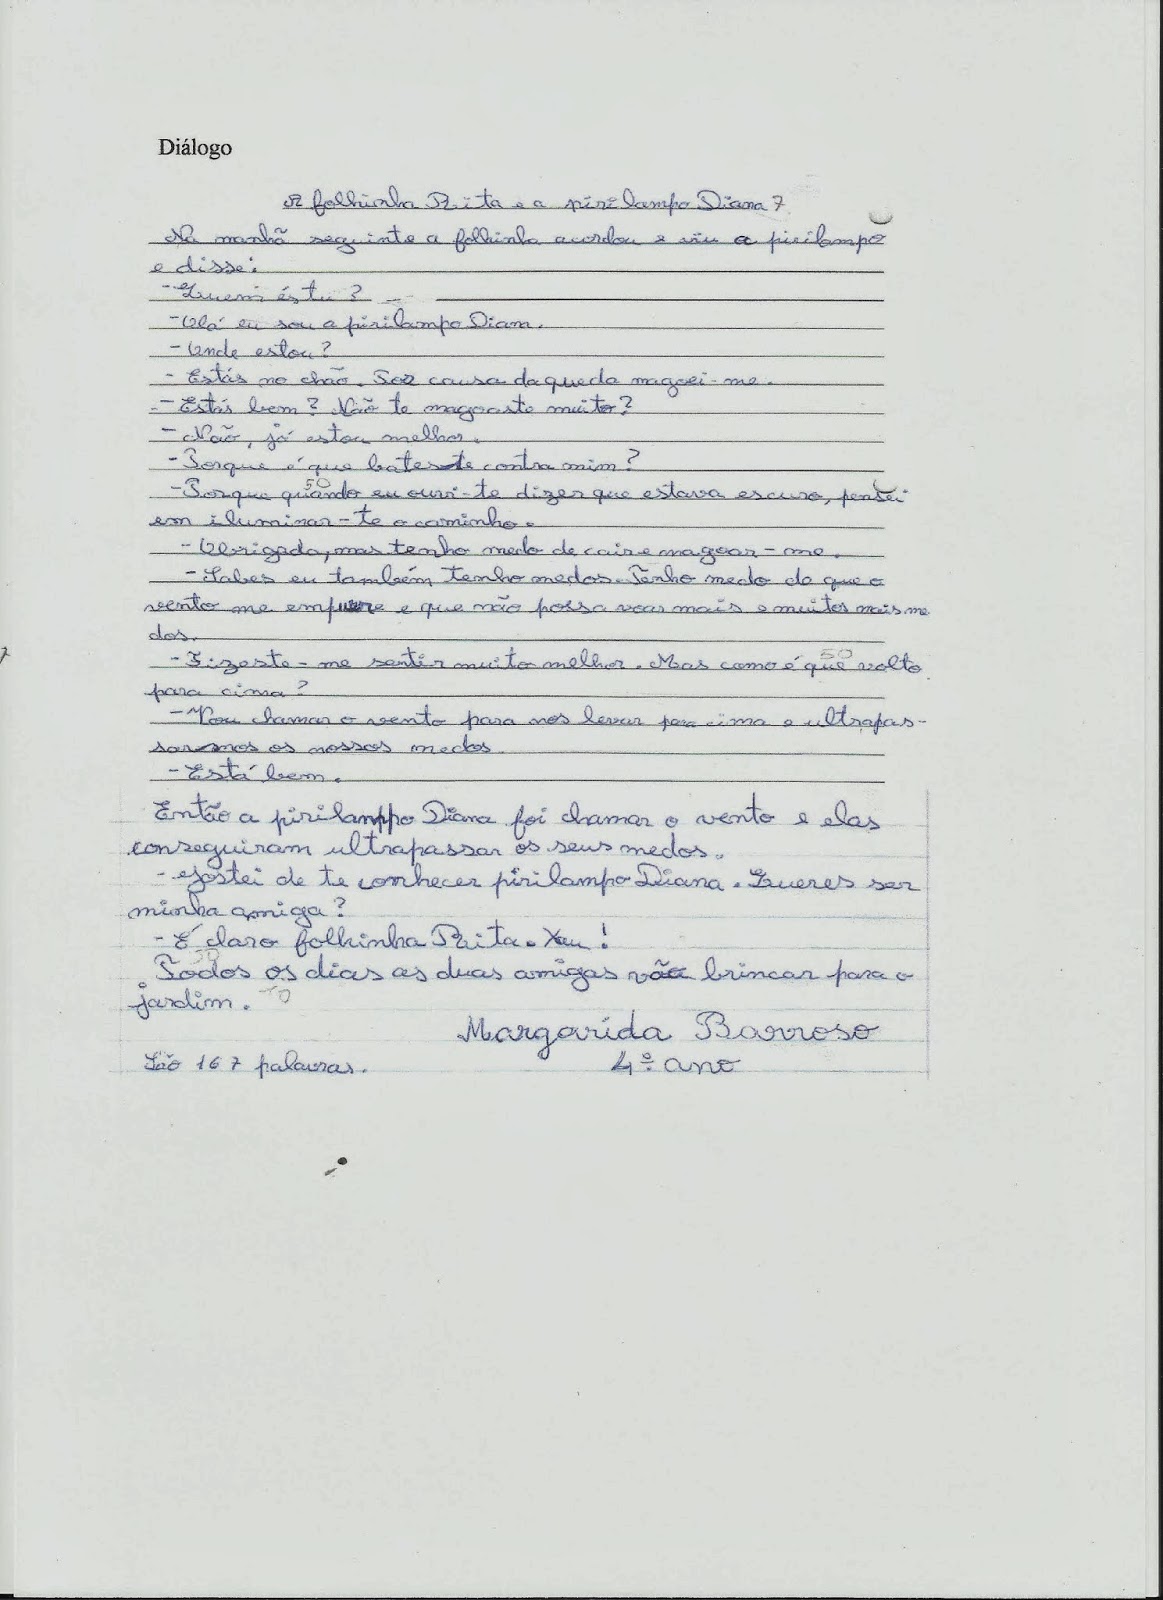 Diálogo
A folhinha Rita e a pirilampo Diana 7
Na manhã seguinte a folhinha acordou e viu a pirilampo
e disse:
- Quem és tu?
- Olá eu sou a pirilampo Diana.
- Onde estou?
- Estás no chão. Por causa da queda magoei-me.
- Estás bem? Não te magoaste muito?
- Não, já estou melhor.
- Porque é que bateste contra mim?
50
- Porque quando eu ouvi-te dizer que estava escuro, pensei
em iluminar-te o caminho.
- Obrigada, mas tenho medo de cair e magoar-me.
- Sabes eu também tenho medos. Tenho medo do que o
vento me empurre e que não possa voar mais e muitos mais me
dos.
50
- Fizeste-me sentir muito melhor. Mas como é que volto
para cima?
- Vou chamar o vento para nos levar para cima e ultrapas-
sarmos os nossos medos.
- Está bem.
Então a pirilampo Diana foi chamar o vento e elas
conseguiram ultrapassar os seus medos.
- Gostei de te conhecer pirilampo Diana. Queres ser
minha amiga?
- É claro folhinha Rita. Xau!
Todos os dias as duas amigas vão brincar para o
jardim. 10
Margarida Barroso
São 167 palavras. 4º ano